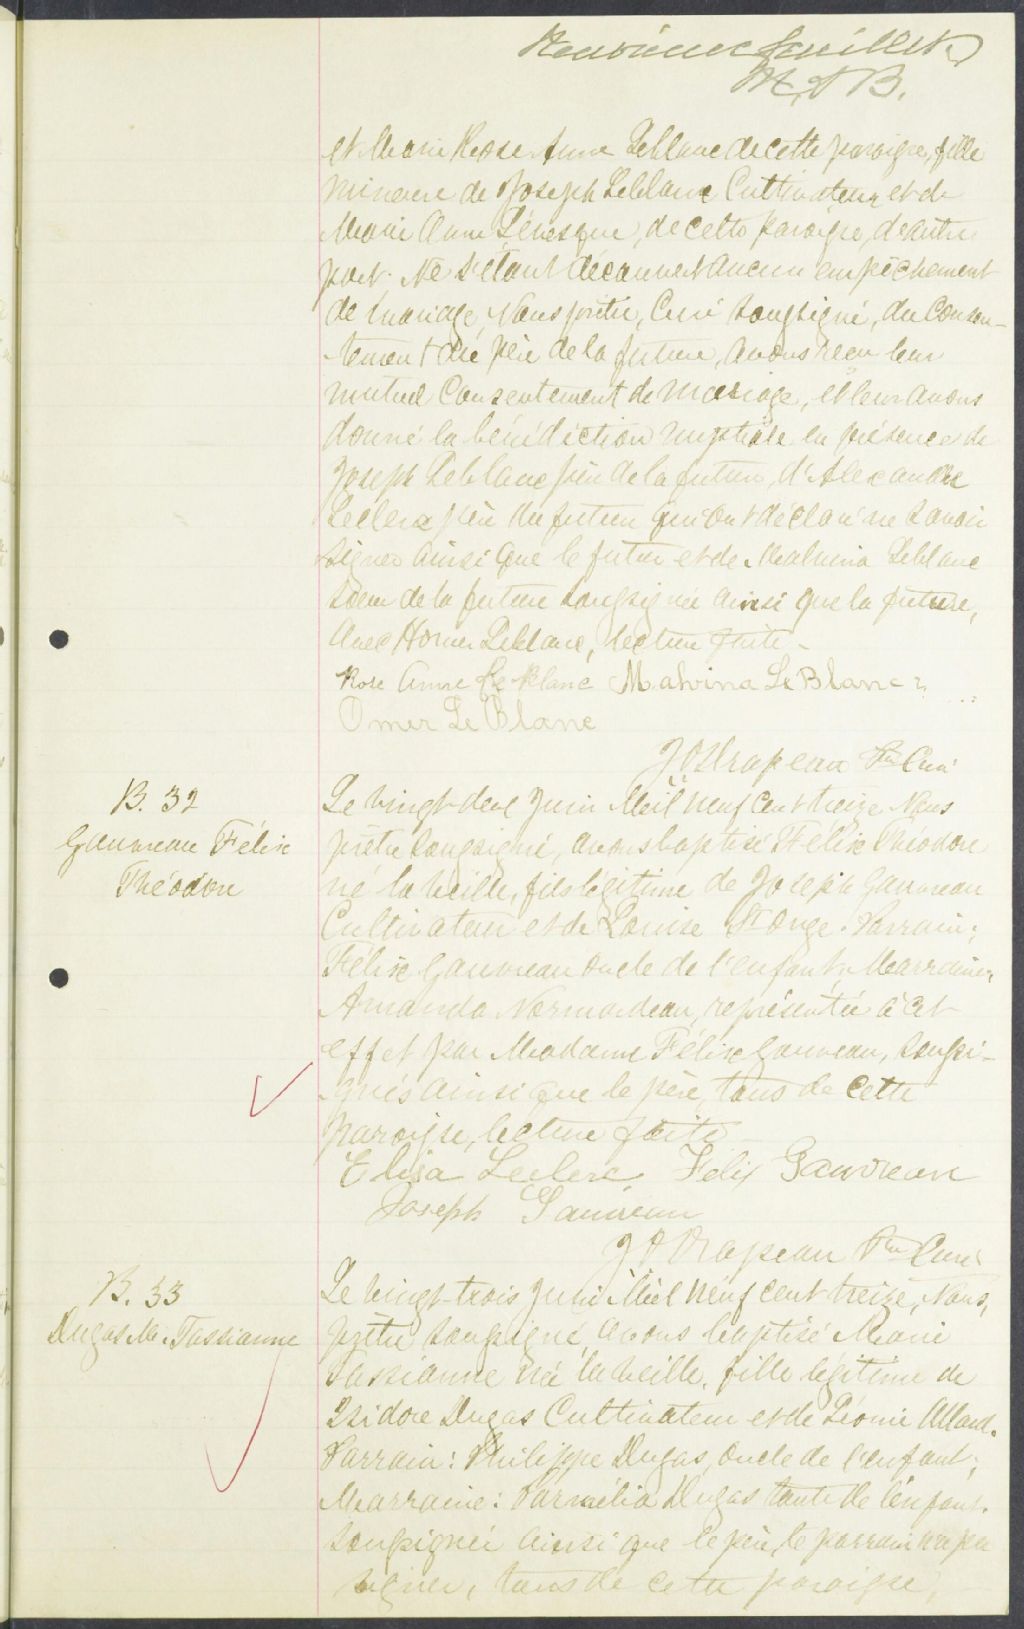 Neuvième feuillet
M. & B.
et Marie Rose Anna Leblanc de cette paroisse, fille
mineure de Joseph Leblanc Cultivateur et de
Marie Anne Lévesque, de cette paroisse, d'autre
part. Ne s'étant découvert aucun empêchement
de mariage, Nous prêtre, Curé soussigné, du consen-
tement du père de la future, avons reçu leur
mutuel consentement de mariage, et leur avons
donné la bénédiction nuptiale en présence de
Joseph Leblanc père de la future, d'Alexandre
Leclerc père du futur qui ont déclaré ne savoir
signer ainsi que le futur et de Malvina Leblanc
soeur de la future soussignée ainsi que la future,
avec Homer Leblanc, lecture faite.
Rose Anne Le Blanc Malvina Le Blanc
Omer Le Blanc
J O Drapeau Ptre Curé
B. 32
Gauvreau Félix
Théodore
Le vingt-deux Juin Mil neuf cent treize Nous
prêtre soussigné, avons baptisé Félix Théodore
né la veille, fils légitime de Joseph Gauvreau
Cultivateur et de Louise St Onge. Parrain:
Félix Gauvreau oncle de l'enfant, Marraine,
Amanda Normandeau, représentée à cet
effet par Madame Félix Gauvreau, soussi-
gnés ainsi que le père, tous de cette
paroisse, lecture faite
Elisa Leclerc Félix Gauvreau
Joseph Gauvreau
J O Drapeau Ptre Curé
B. 33
Dugas M. Tassianne
Le vingt-trois Juin Mil neuf cent treize, Nous,
prêtre soussigné, avons baptisé Marie
Tassianne née la veille, fille légitime de
Isidore Dugas Cultivateur et de Léonie Allard.
Parrain: Philippe Dugas, oncle de l'enfant;
Marraine: Parmélia Dugas tante de l'enfant.
soussignée ainsi que le père, le parrain n'a pu
signer, tous de cette paroisse,